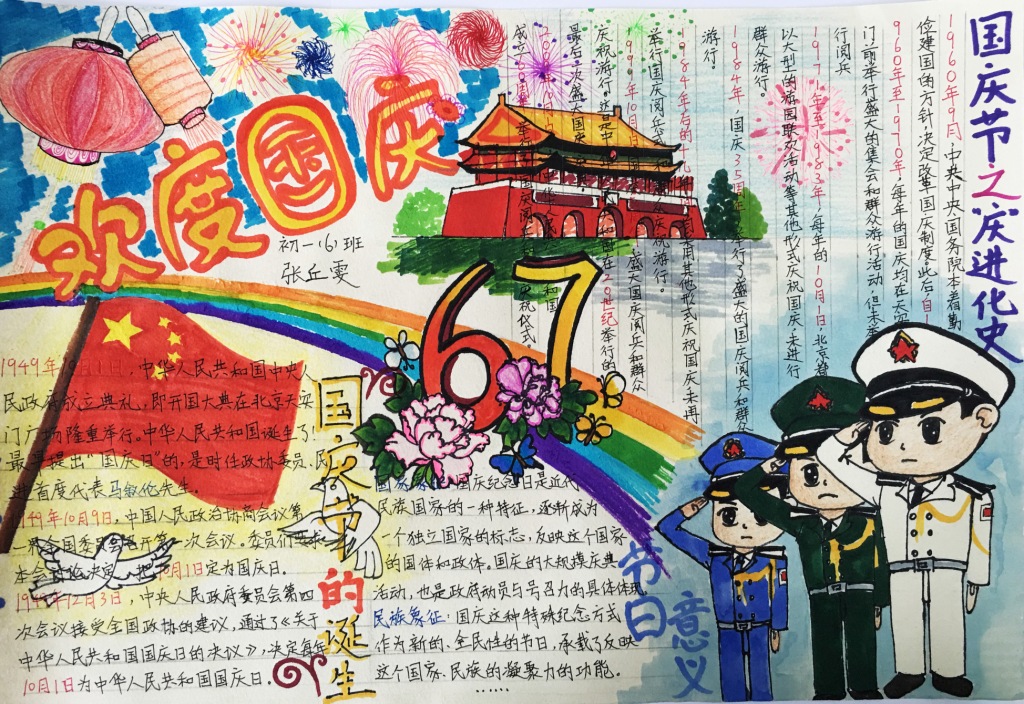 欢度国庆
初一(6)班
张丘雯
67
国庆节之"庆"进化史
1960年9月,中央中央国务院本着勤
俭建国的方针,决定改革国庆制度。此后,自1
960年至1970年,每年的国庆均在天安
门前举行盛大的集会和群众游行活动,但未举
行阅兵
1971年至1983年,每年的10月1日,北京都
以大型的游园联欢活动等其他形式庆祝国庆,未进行
群众游行。
1984年,国庆35周年,举行了盛大的国庆阅兵和群众
游行。
1984年后的
用其他形式庆祝国庆,未再
举行国庆阅兵
庆祝游行。
盛大国庆阅兵和群众
庆祝游行。这是中
在20世纪举行的
最后一次盛大国庆
国庆节的诞生
1949年10月1日,中华人民共和国中央人
民政府成立典礼,即开国大典在北京天安
门广场隆重举行。中华人民共和国诞生了!
最早提出"国庆日"的,是时任政协委员、民
进首度代表马叙伦先生。
1949年10月9日,中国人民政治协商会议第
一届全国委员会召开第一次会议。委员们
本会 决定 把10月1日定为国庆日。
1949年12月3日,中央人民政府委员会第四
次会议接受全国政协的建议,通过了《关于
中华人民共和国国庆日的决议》,决定每年
10月1日为中华人民共和国国庆日。
节日意义
国庆纪念日是近代
民族国家的一种特征,逐渐成为
一个独立国家的标志,反映这个国家
的国体和政体。国庆的大规模庆典
活动,也是政府动员与号召力的具体体现。
民族象征:国庆这种特殊纪念方式
作为新的、全民性的节日,承载了反映
这个国家、民族的凝聚力的功能。
……